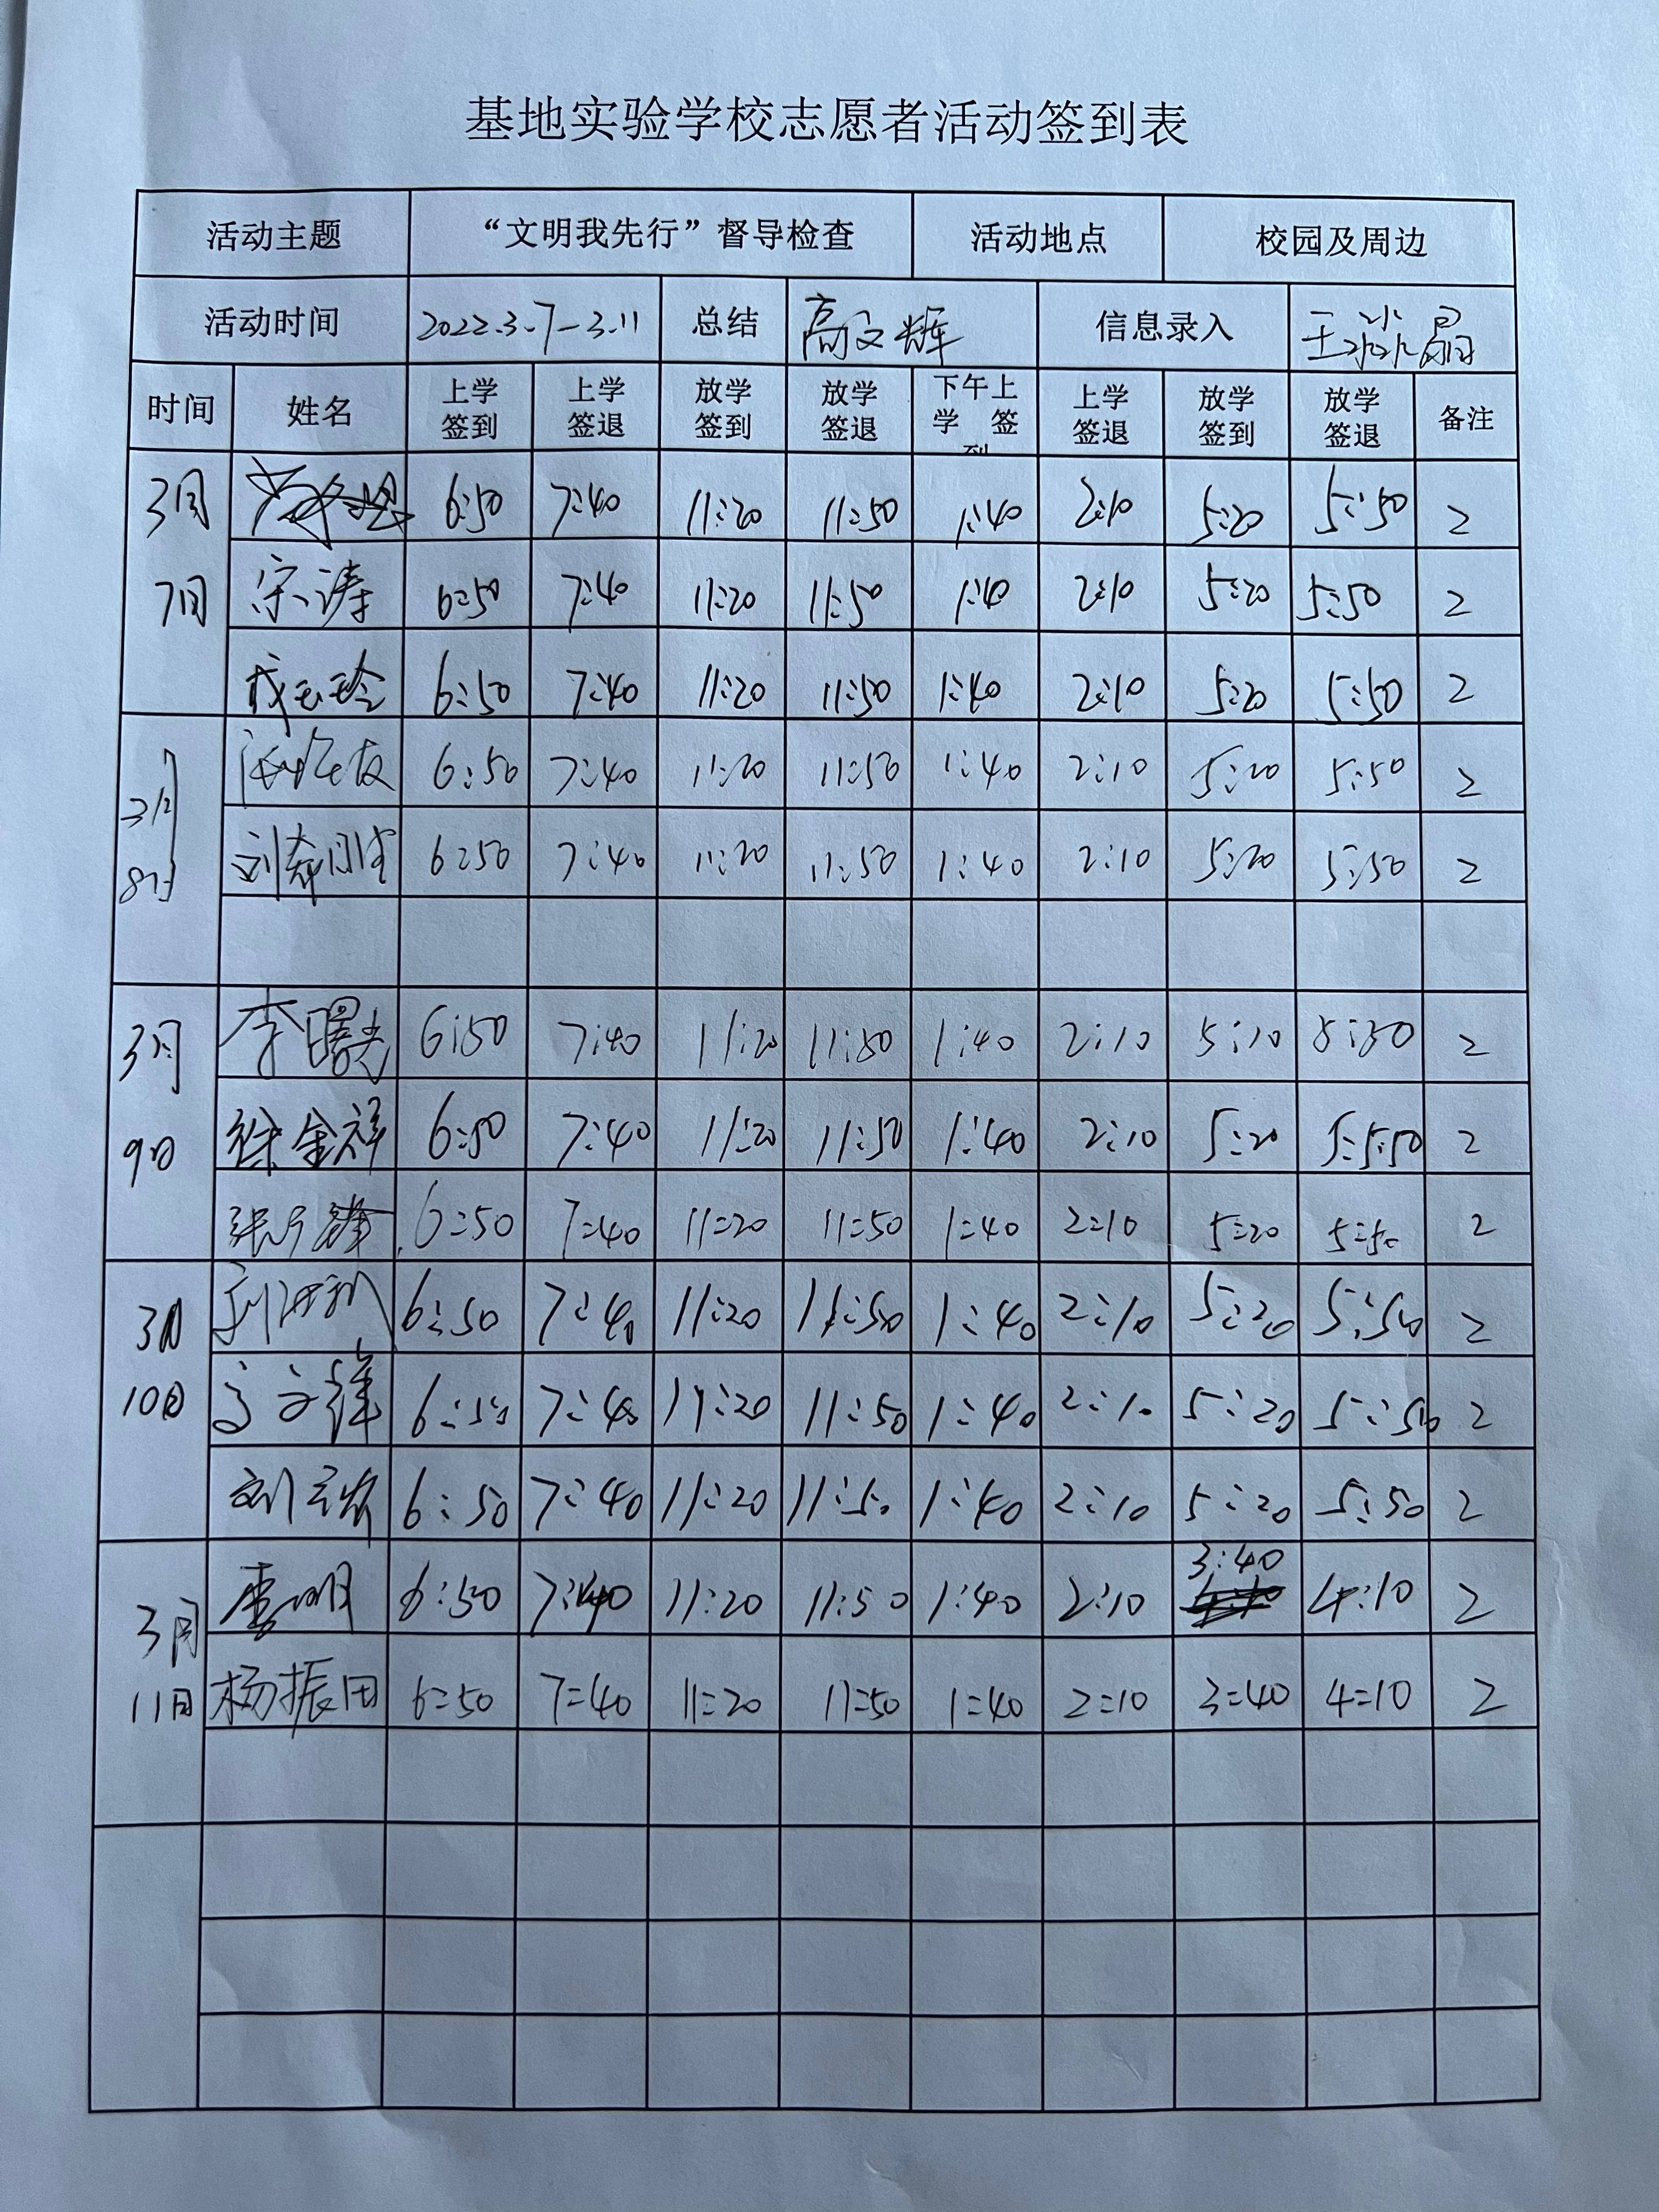 基地实验学校志愿者活动签到表
活动主题 “文明我先行”督导检查 活动地点 校园及周边
活动时间 2022.3.7-3.11 总结 高文辉 信息录入 王淼晶
时间 姓名 上学签到 上学签退 放学签到 放学签退 下午上学 签到 上学签退 放学签到 放学签退 备注
3月7日 6:50 7:40 11:20 11:50 1:40 2:10 5:20 5:50 2
宋涛 6:50 7:40 11:20 11:50 1:40 2:10 5:20 5:50 2
6:50 7:40 11:20 11:50 1:40 2:10 5:20 5:50 2
3月8日 6:50 7:40 11:20 11:50 1:40 2:10 5:20 5:50 2
刘 6:50 7:40 11:20 11:50 1:40 2:10 5:20 5:50 2
3月9日 李曙光 6:50 7:40 11:20 11:50 1:40 2:10 5:10 5:50 2
徐金祥 6:50 7:40 11:20 11:50 1:40 2:10 5:20 5:5:50 2
张 6:50 7:40 11:20 11:50 1:40 2:10 5:20 5:50 2
3月10日 6:50 7:40 11:20 11:50 1:40 2:10 5:20 5:50 2
6:50 7:40 11:20 11:50 1:40 2:10 5:20 5:50 2
刘 6:50 7:40 11:20 11:50 1:40 2:10 5:20 5:50 2
3月11日 李明 6:50 7:40 11:20 11:50 1:40 2:10 3:40 4:10 2
杨振田 6:50 7:40 11:20 11:50 1:40 2:10 3:40 4:10 2